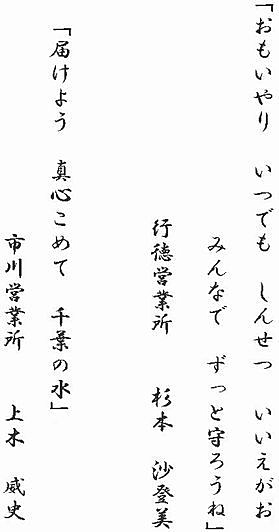 「おもいやり　いつでも　しんせつ　いいえがお
みんなで　ずっと守ろうね」
行徳営業所　杉本　沙登美
「届けよう　真心こめて　千葉の水」
市川営業所　上木　威史